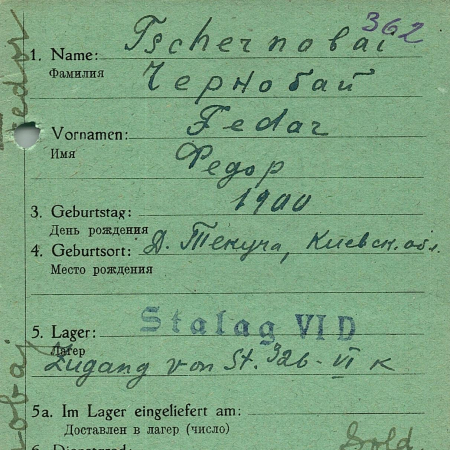 362
1. Name: Tschernobai
Фамилия Чернобай
Vornamen: Fedar
Имя Федор
3. Geburtstag: 1900
День рождения
4. Geburtsort: Д. Текуча, Киевск. обл.
Место рождения
5. Lager: Stalag VI D
Лагер
Zugang von St. 326 - VI K
5a. Im Lager eingeliefert am:
Доставлен в лагер (число)
Sold.